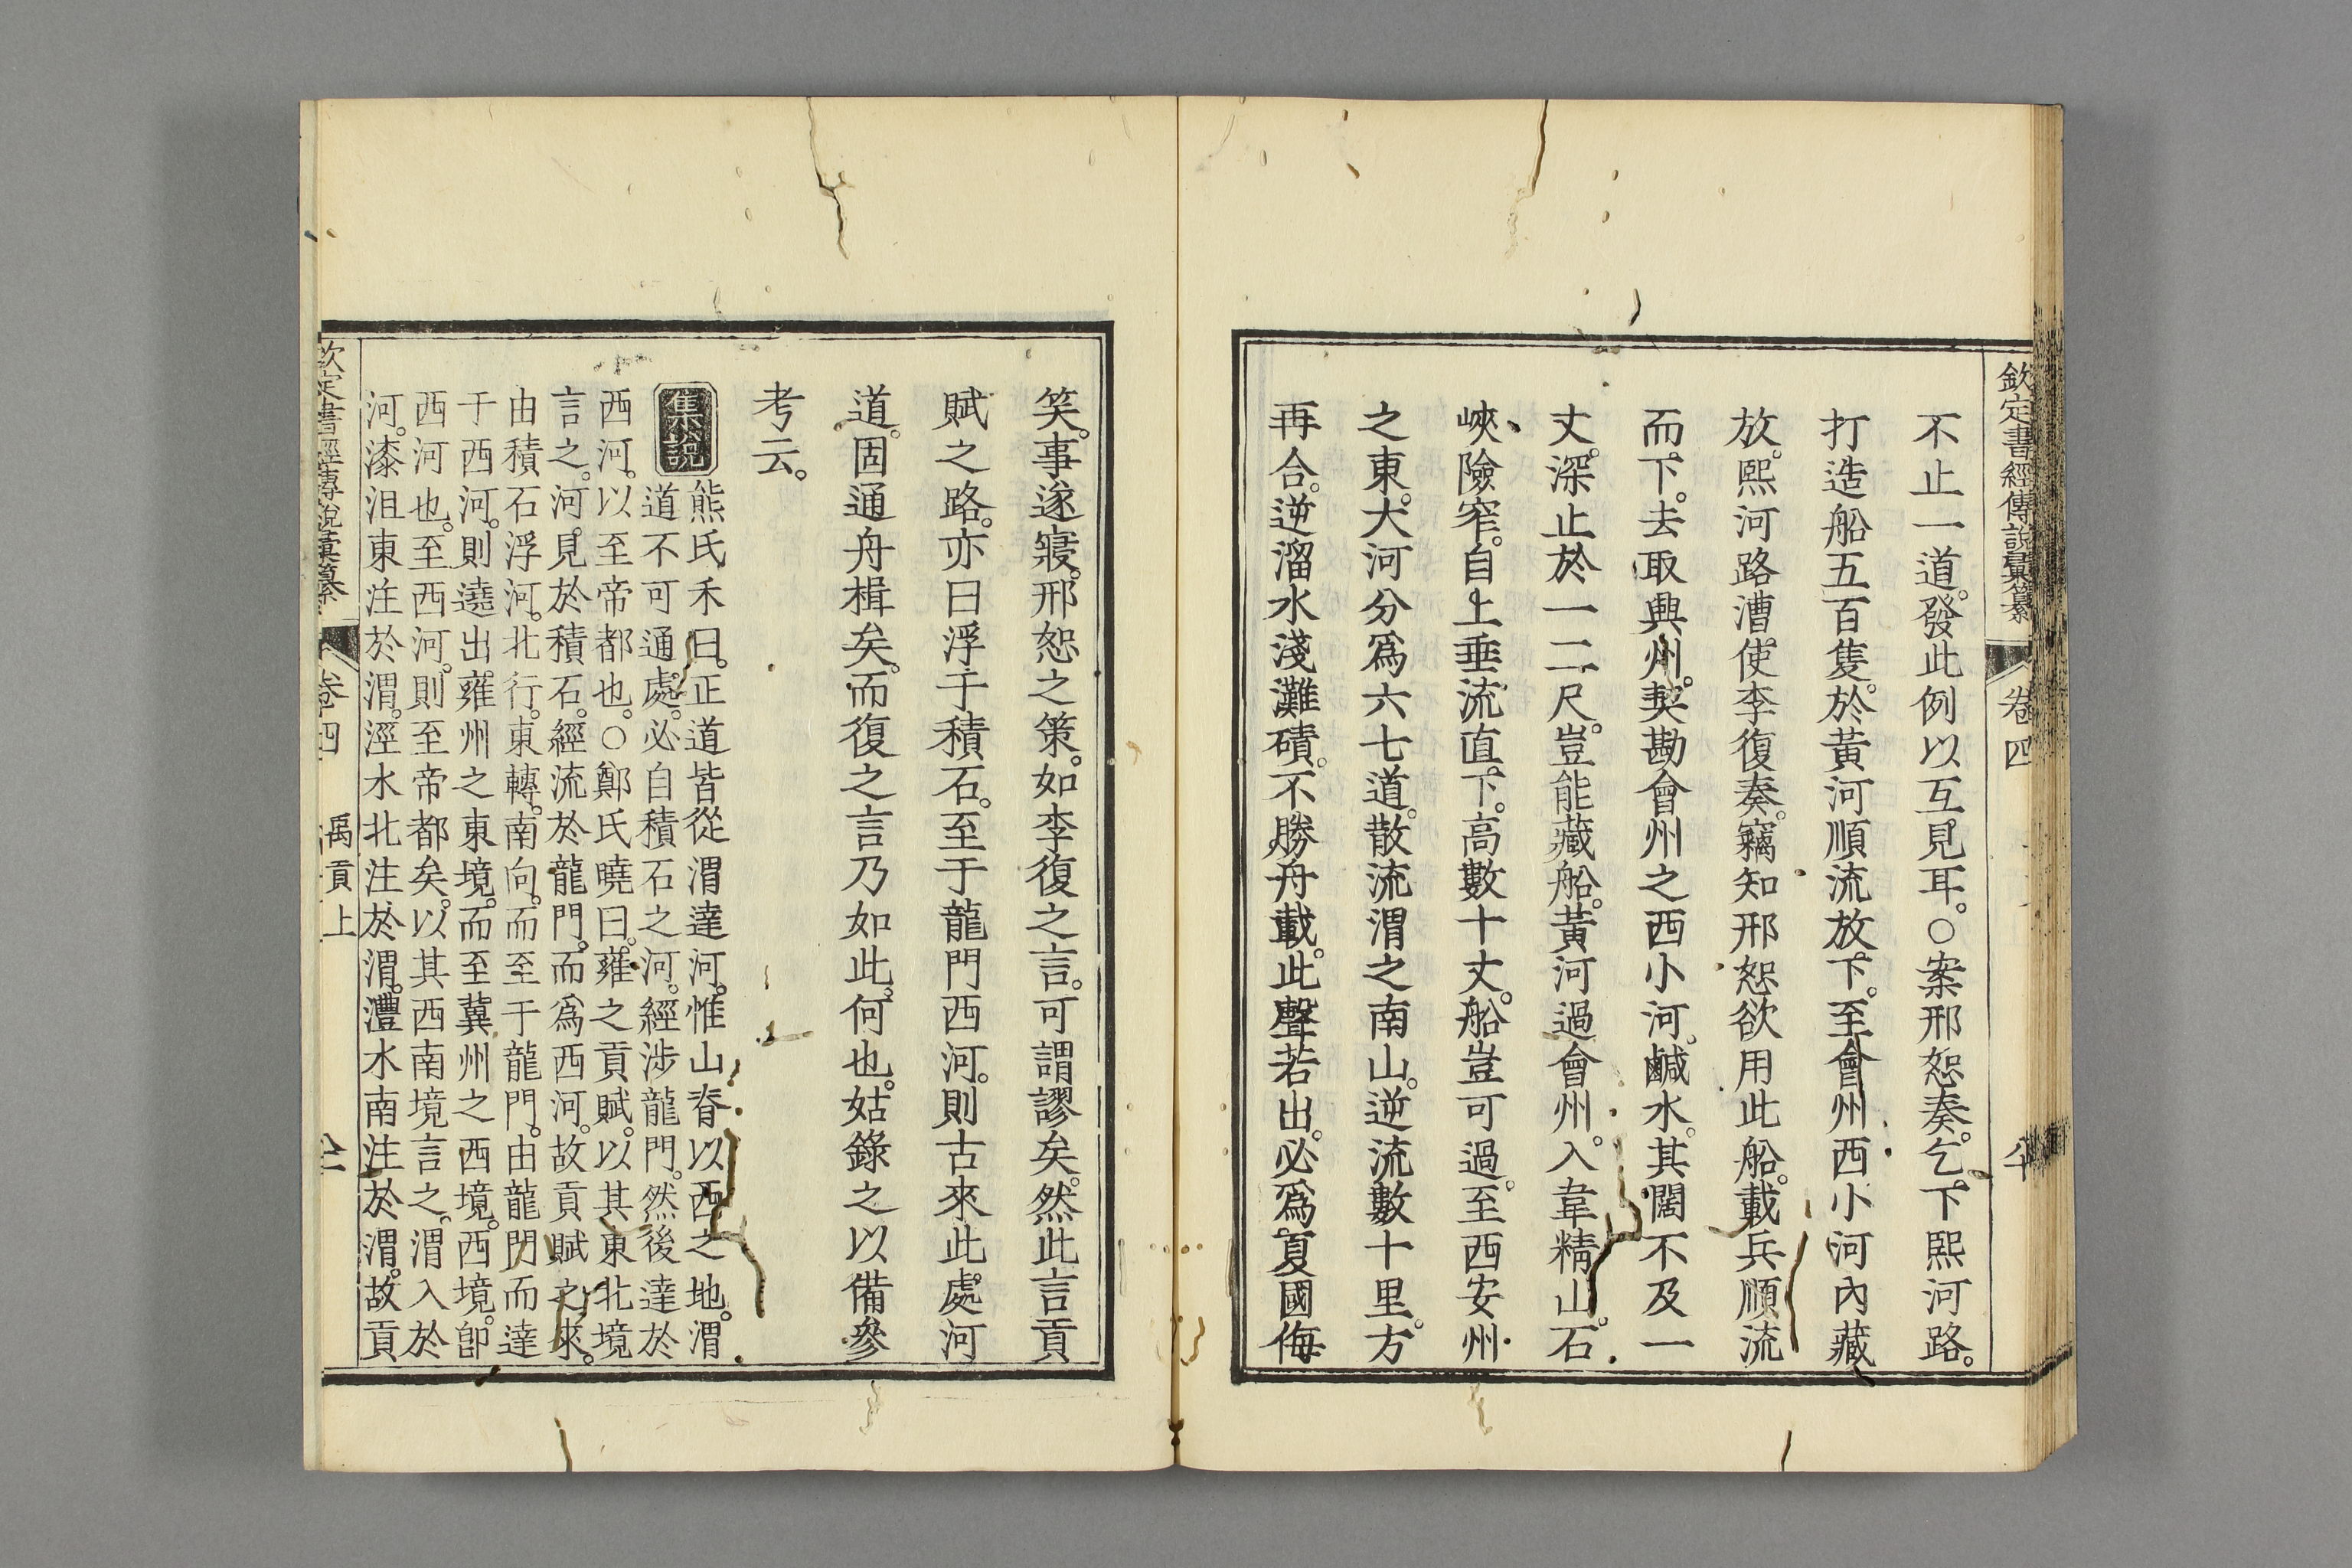 欽定書經傳說彙纂　卷四
不止一道。發此例以互見耳。○案邢恕奏。乞下熙河路。
打造船五百隻。於黃河順流放下。至會州西小河內藏
放。熙河路漕使李復奏。竊知邢恕欲用此船。載兵順流
而下。去取興州。契勘會州之西小河。鹹水。其闊不及一
丈。深止於一二尺。豈能藏船。黃河過會州。入韋精山。石
峽險窄。自上垂流直下。高數十丈。船豈可過。至西安州
之東。大河分爲六七道。散流渭之南山。逆流數十里。方
再合。逆溜水淺灘磧。不勝舟載。此聲若出。必爲夏國侮
笑。事遂寢。邢恕之策。如李復之言。可謂謬矣。然此言貢
賦之路。亦曰浮于積石。至于龍門西河。則古來此處河
道。固通舟楫矣。而復之言乃如此。何也。姑錄之以備參
考云。
集說
熊氏禾曰。正道皆從渭達河。惟山脊以西之地。渭
道不可通處。必自積石之河。經涉龍門。然後達於
西河。以至帝都也。○鄭氏曉曰。雍之貢賦。以其東北境
言之。河見於積石。經流於龍門。而爲西河。故貢賦之來。
由積石浮河。北行。東轉。南向。而至于龍門。由龍門而達
于西河。則遶出雍州之東境。而至冀州之西境。西境。卽
西河也。至西河。則至帝都矣。以其西南境言之。渭入於
河。漆沮東注於渭。涇水北注於渭。灃水南注於渭。故貢
欽定書經傳說彙纂　卷四　禹貢上